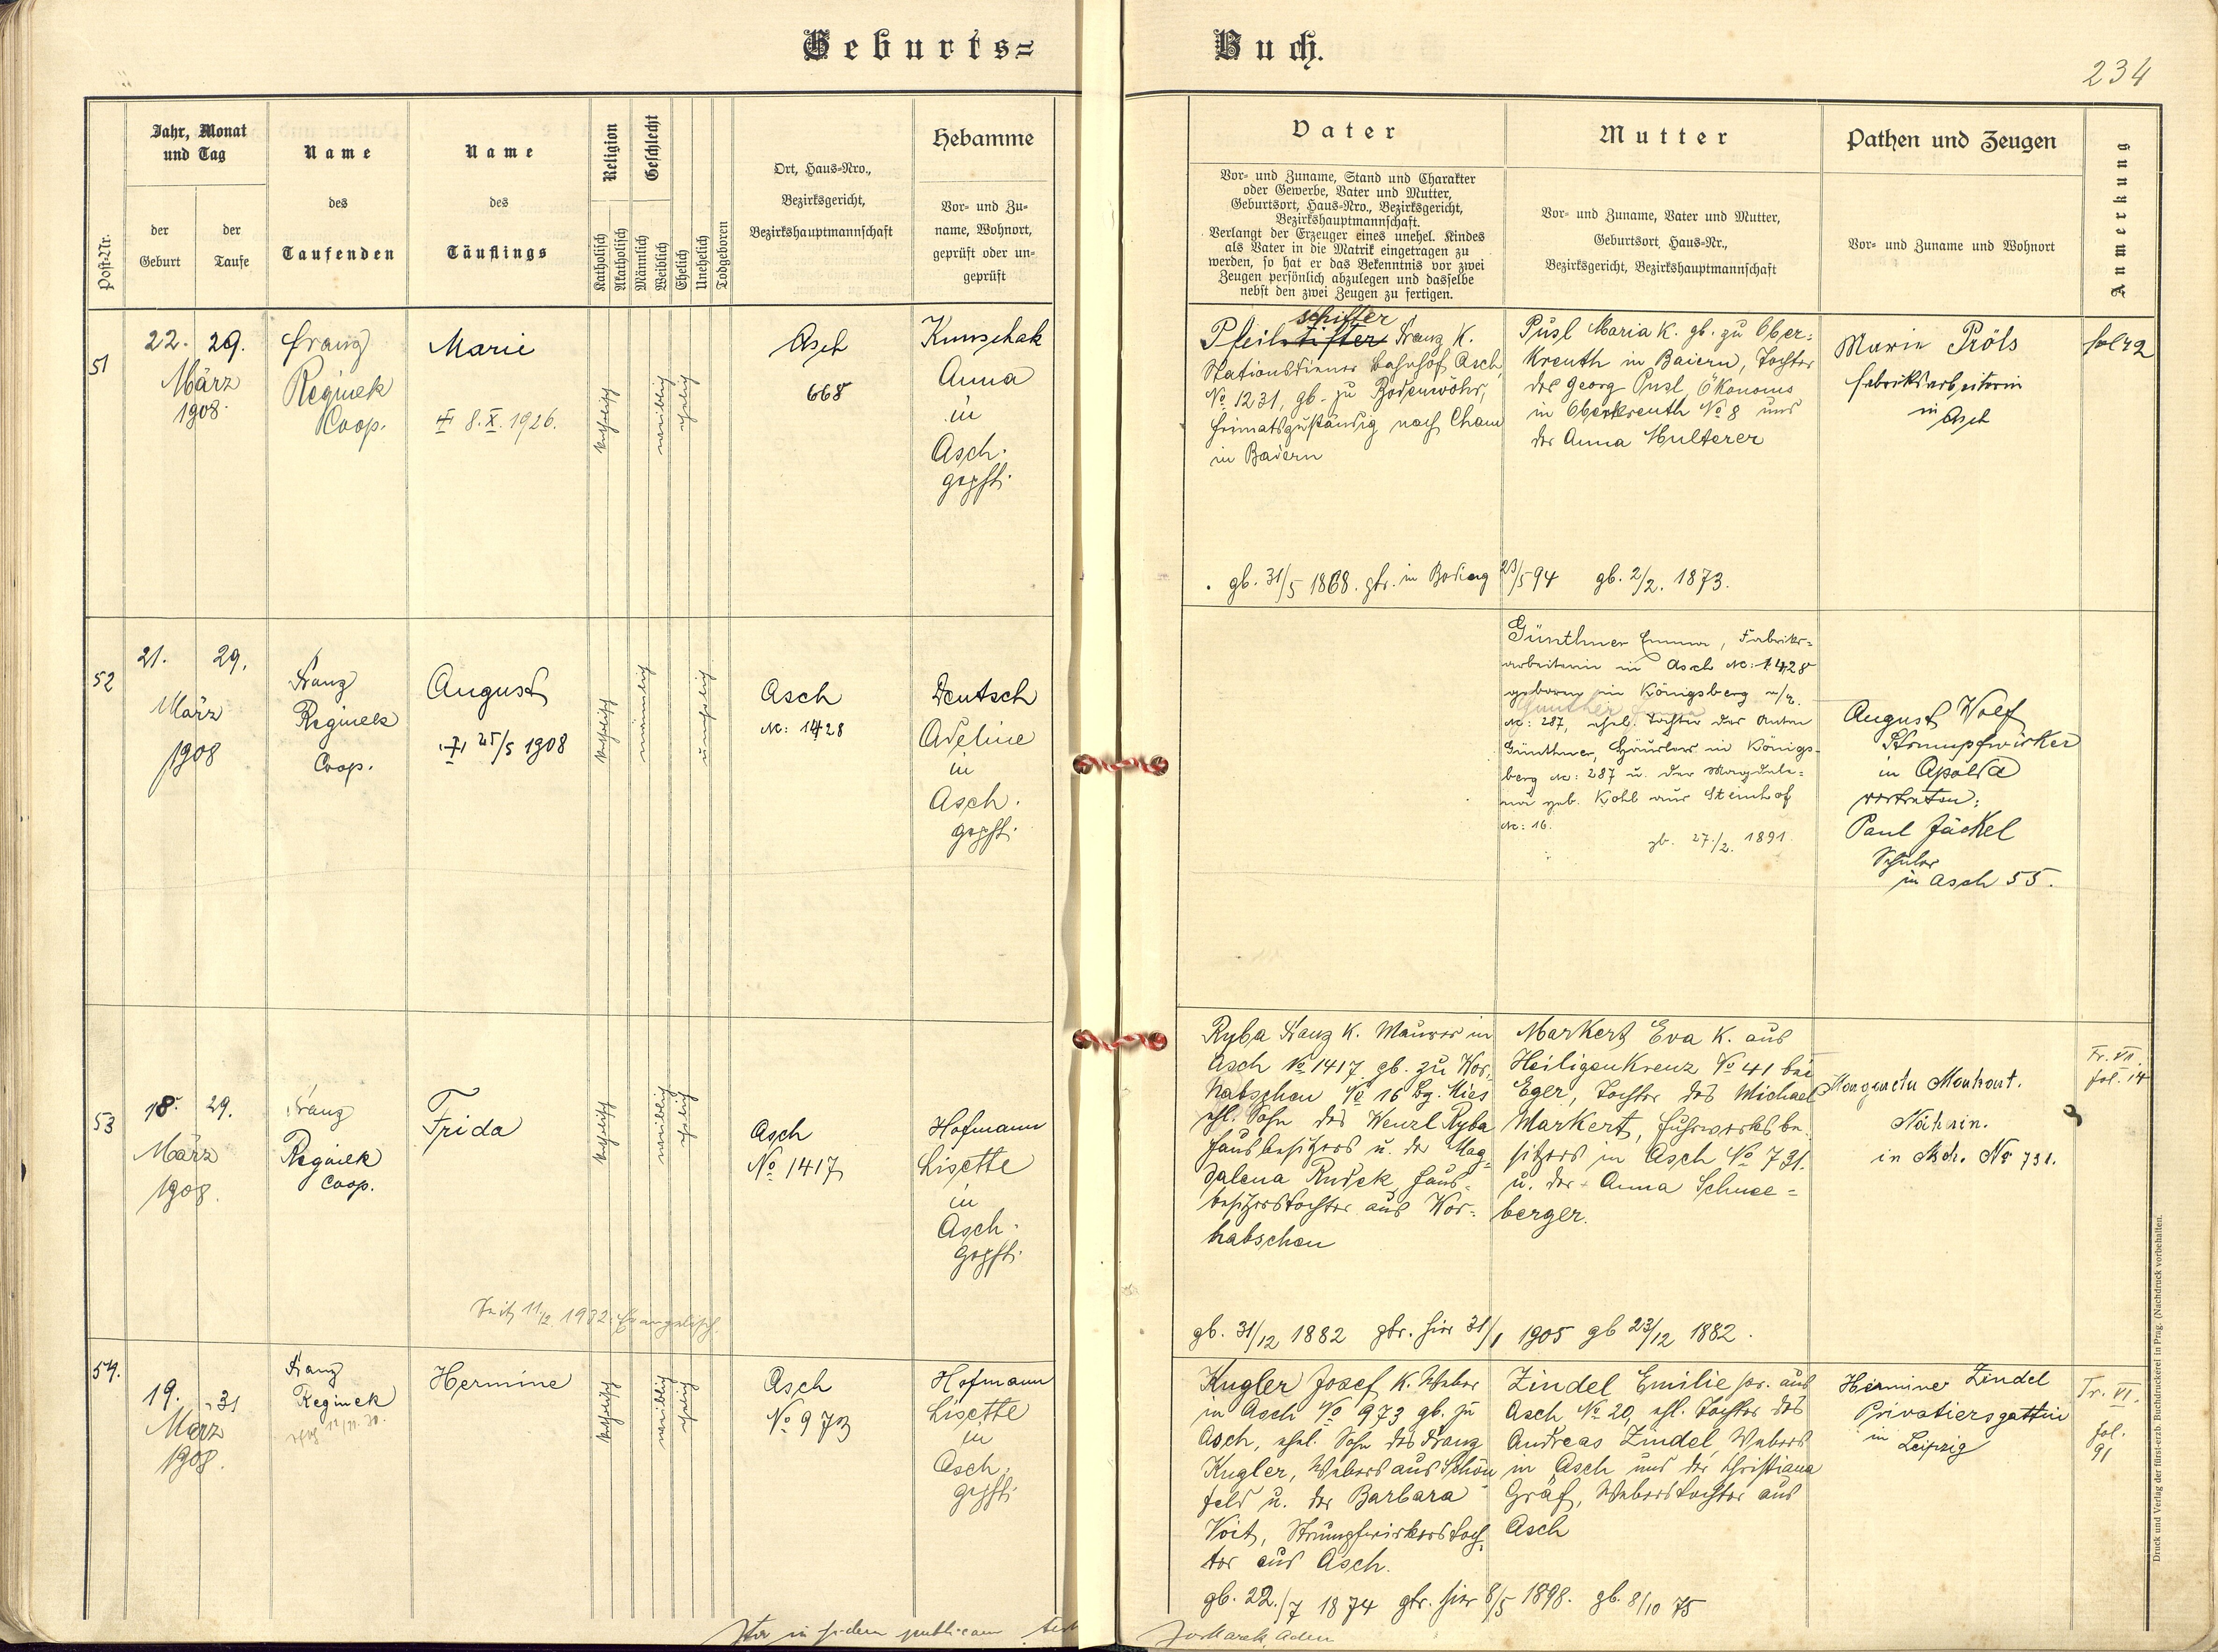 Geburts=
Buch.
234
Post-Nr.
Jahr, Monat
und Tag
der
Geburt
der
Taufe
Name
des
Taufenden
Name
des
Täuflings
Religion
Katholisch
Akatholisch
Geschlecht
Männlich
Weiblich
Ehelich
Unehelich
Todgeboren
Ort, Haus-Nro.,
Bezirksgericht,
Bezirkshauptmannschaft
Hebamme
Vor- und Zu-
name, Wohnort,
geprüft oder un-
geprüft
Vater
Vor- und Zuname, Stand und Charakter
oder Gewerbe, Vater und Mutter,
Geburtsort, Haus-Nro., Bezirksgericht,
Bezirkshauptmannschaft.
Verlangt der Erzeuger eines unehel. Kindes
als Vater in die Matrik eingetragen zu
werden, so hat er das Bekenntnis vor zwei
Zeugen persönlich abzulegen und dasselbe
nebst den zwei Zeugen zu fertigen.
Mutter
Vor- und Zuname, Vater und Mutter,
Geburtsort, Haus-Nr.,
Bezirksgericht, Bezirkshauptmannschaft
Pathen und Zeugen
Vor- und Zuname und Wohnort
Anmerkung
51
22. 29.
März
1908.
Franz
Reginek
Coop.
Marie
8. X. 1926.
katholisch
weiblich
ehelich
Asch
668
Kunschak
Anna
in
Asch.
gepft.
schifter
Pfeilstifter Franz K.
Stationsdiener Bahnhof Asch
No 1231, gb. zu Bodenwöhr,
heimatszuständig nach Cham
in Baiern
gb. 31/5 1868. gtr. in 23/5 94
Pusl Maria K. gb. zu Ober-
kreuth in Baiern, Tochter
des Georg Pusl Ökonoms
in Oberkreuth No 8 und
der Anna Multerer
gb. 2/2. 1873.
Marie Pröls
Fabriksarbeiterin
in Asch
fol 42
52
21. 29.
März
1908
Franz
Reginek
Coop.
August
25/5 1908
katholisch
männlich
unehelich
Asch
No: 1428
Deutsch
Adeline
in
Asch.
gepft.
Günthner Emma, Fabriks-
arbeiterin in Asch No: 1428
geboren in Königsberg a/E.
No: 287, ehel. Tochter des Anton
Günthner, Häuslers in Königs-
berg No: 287 u. der Magdale-
na geb. Kohl aus Steinhof
No: 16.
gb. 27./2. 1891.
August Wolf
Strumpfwirker
in Apolda
vertreten:
Paul Jäckel
Schüler
in Asch 55.
53
18. 29.
März
1908.
Franz
Reginek
Coop.
Frida
katholisch
weiblich
ehelich
Asch
No 1417
Hofmann
Lisette
in
Asch.
gepft.
Seit 11./2. 1932 Evangelisch.
Ryba Franz K. Maurer in
Asch No 1417 gb. zu Wor-
habschen No 16 Bg. Mies
ehl. Sohn des Wenzl Ryba
Hausbesitzers u. der Mag-
dalena Rudek, Haus-
besitzerstochter aus Wor-
habschen
gb. 31/12 1882 gtr. hier 31/1 1905
Markert Eva K. aus
Heiligenkreuz No 41 bei
Eger, Tochter des Michael
Markert, Fuhrwerksbe-
sitzers in Asch No 731.
u. der Anna Schnee-
berger.
gb 23/12 1882.
Margareta Markert.
Näherin.
in Asch. No 731.
Tr. VII.
fol. 14
54.
19. 31
März
1908.
Franz
Reginek
Hermine
katholisch
weiblich
ehelich
Asch
No 973
Hofmann
Lisette
in
Asch.
gepft.
Kugler Josef K. Weber
in Asch No 973 gb. zu
Asch, ehel. Sohn des Franz
Kugler, Webers aus Schön-
feld u. der Barbara
Voit, Strumpfwirkerstoch-
ter aus Asch.
gb. 22./7 1874 gtr. hier 8/5 1898.
Zindel Emilie pr. aus
Asch No 20, ehl. Tochter des
Andreas Zindel, Webers
in Asch und der Christiana
Gräf, Weberstochter aus
Asch
gb. 8/10 75
Hermine Zindel
Privatiersgattin
in Leipzig
Tr. VI.
fol.
91
in fidem publicam
Druck und Verlag der fürst-erzb. Buchdruckerei in Prag. (Nachdruck vorbehalten.